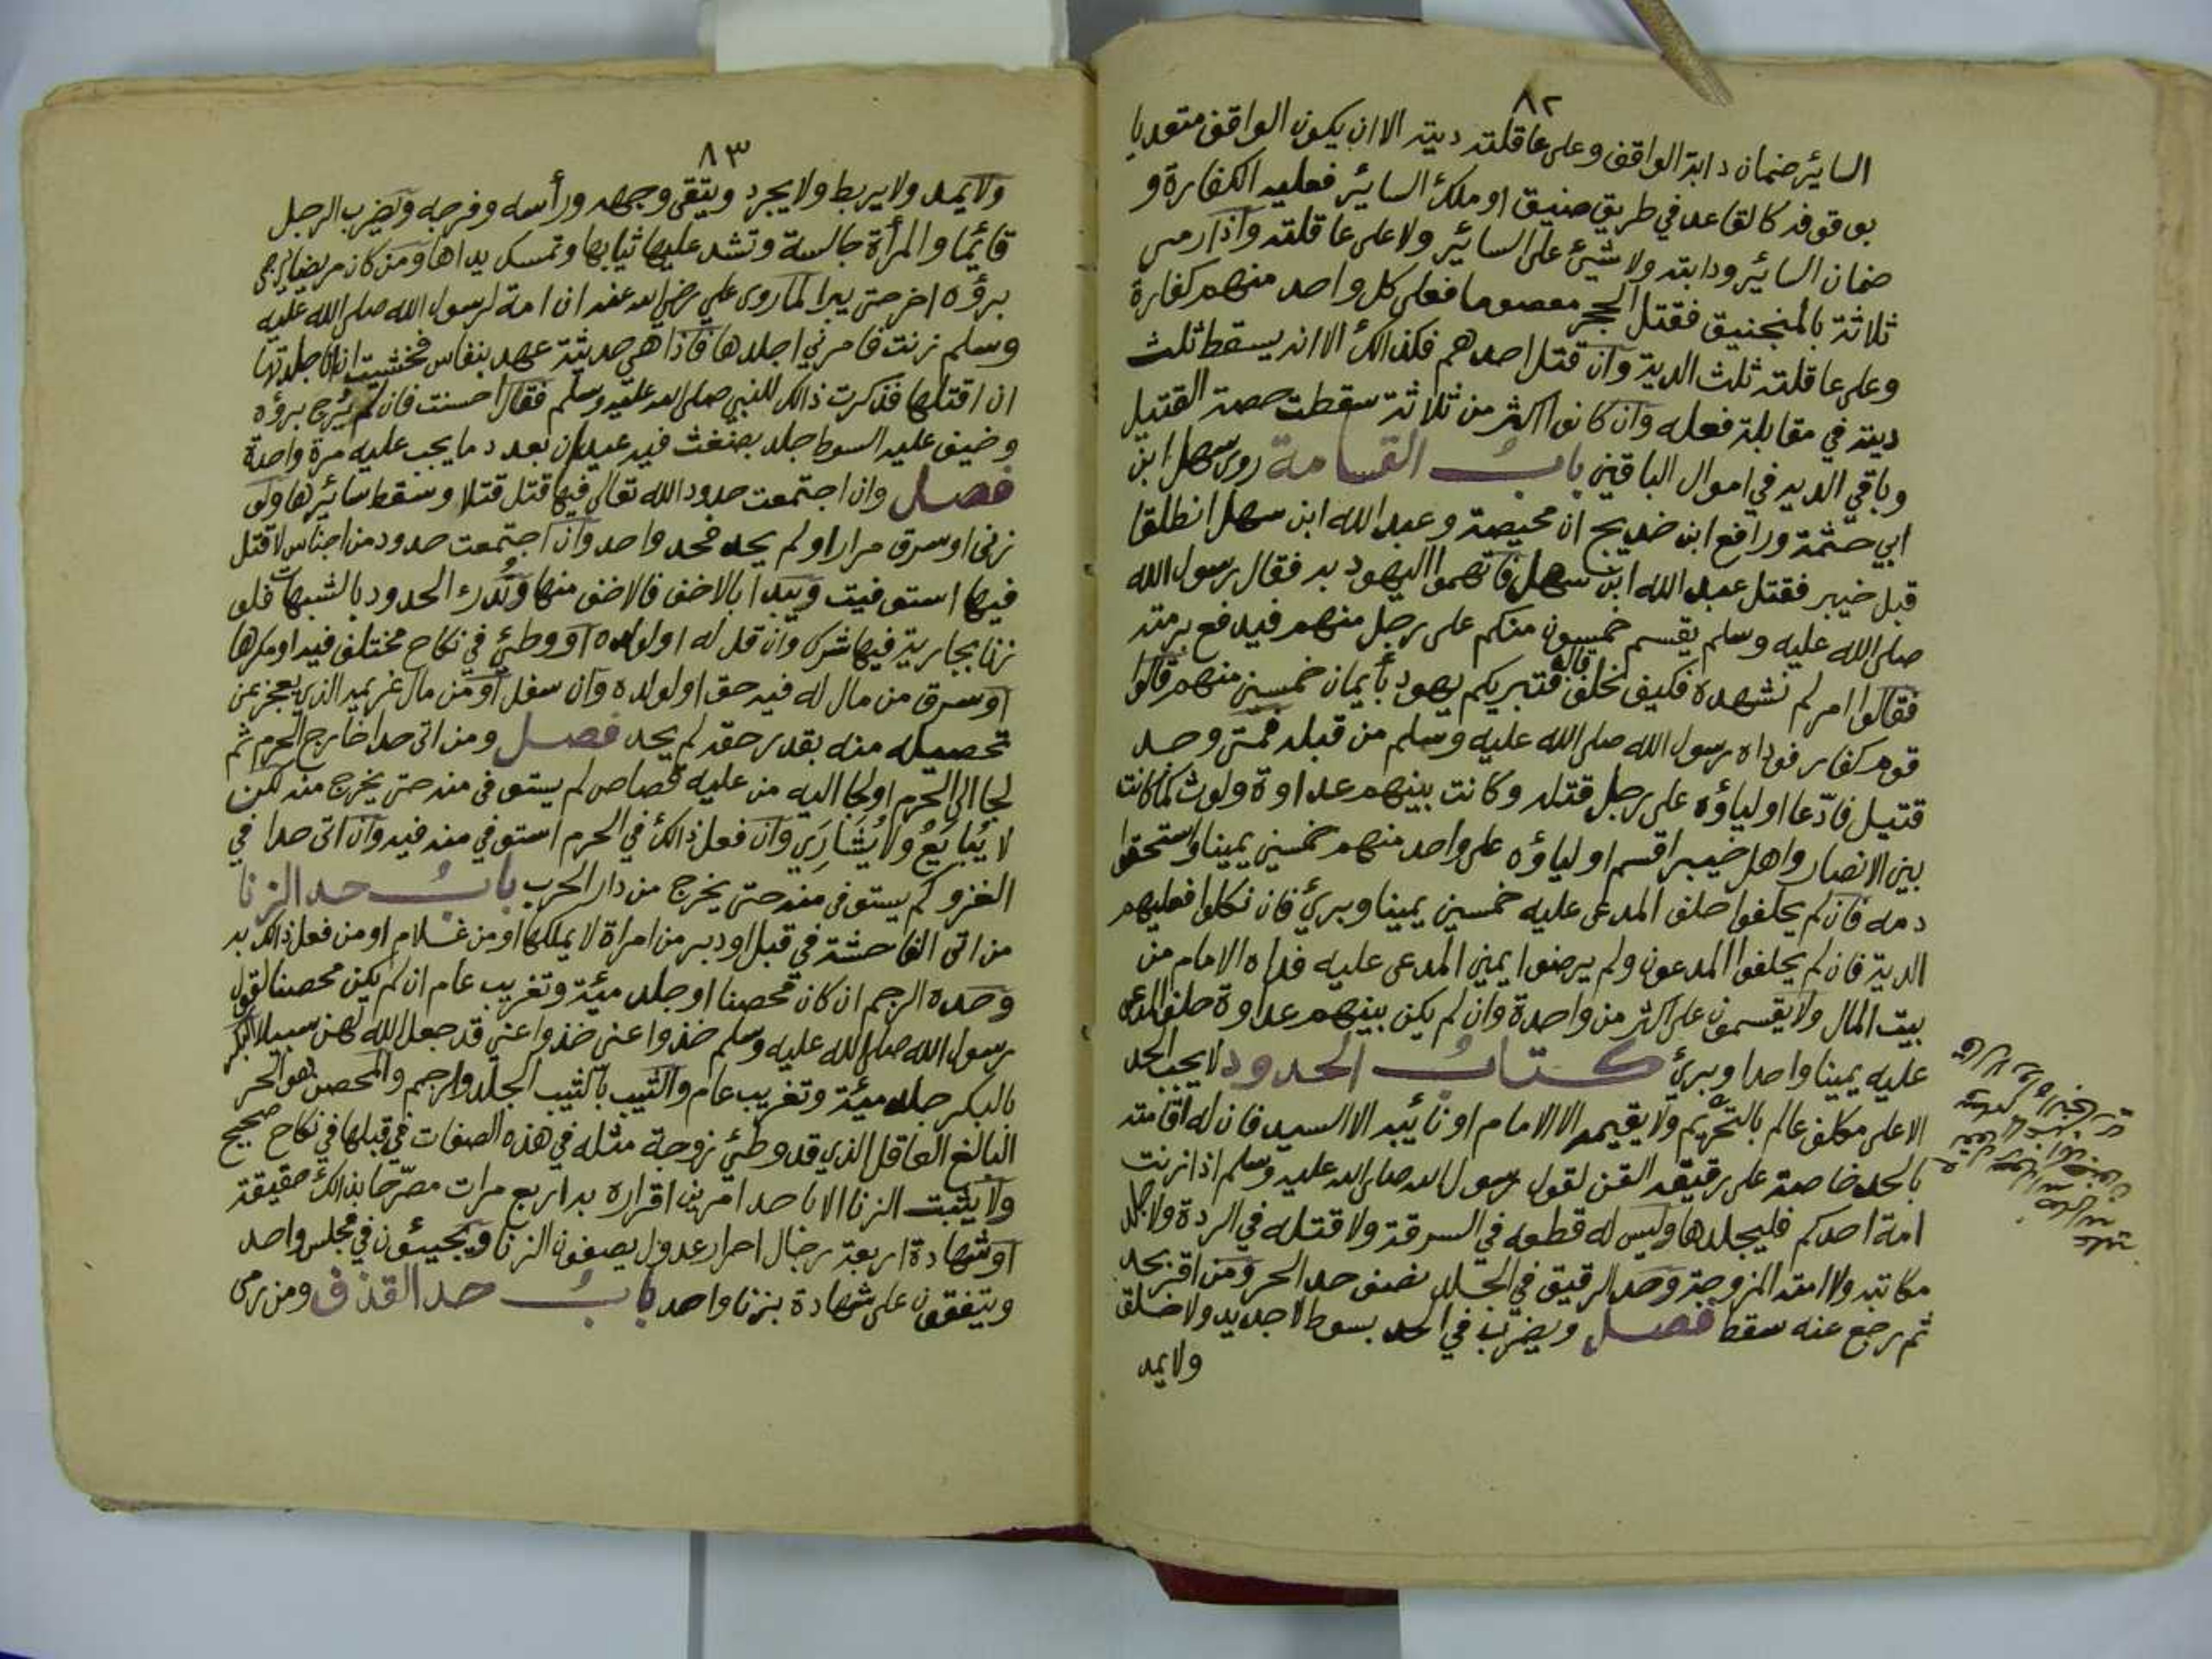 ٨٢
السائر ضمان دابة الواقف وعلى عاقلته ديته الا ان يكون الواقف متعديا
بوقوفه كالقاعد في طريق ضيق او ملك السائر فعليه الكفارة و
ضمان السائر ودابته ولا شيئ على السائر ولا على عاقلته واذا رمى
ثلاثة بالمنجنيق فقتل الحجر معصوما فعلى كل واحد منهم كفارة
وعلى عاقلته ثلث الدية وان قتل احدهم فكذالك الا انه يسقط ثلث
ديته في مقابلة فعله وان كانوا اكثر من ثلاثة سقطت حصة القتيل
وباقي الديه في اموال الباقين باب القسامة روى سهل ابن
ابي حثمة ورافع ابن خديج ان محيصة وعبد الله ابن سهل انطلقا
قبل خيبر فقتل عبد الله ابن سهل فاتهموا اليهود به فقال رسول الله
صلى الله عليه وسلم يقسم خمسون منكم على رجل منهم فيدفع برمته
فقالوا امر لم نشهده فكيف نحلف قال فتبريكم يهود بأيمان خمسين منهم قالوا
قوم كفار فوداه رسول الله صلى الله عليه وسلم من قبله فمتى وجد
قتيل فادّعا اولياؤه على رجل قتله وكانت بينهم عداوة ولوث كما كانت
بين الانصار واهل خيبر اقسم اولياؤه على واحد منهم خمسين يمينا واستحقوا
دمه فان لم يحلفوا حلف المدعى عليه خمسين يمينا وبرئ فان نكلوا فعليهم
الدية فان لم يحلفوا المدعون ولم يرضوا يمين المدعى عليه فداه الامام من
بيت المال ولا يقسمون على اكثر من واحدة وان لم يكن بينهم عداوة حلف المدعى
عليه يمينا واحدا وبرئ كتاب الحدود لا يجب الحد
الا على مكلف عالم بالتحريم ولا يقيمه الا الامام او نائبه الا السيد فان له اقامته
بالجلد خاصة على رقيقه القن لقول رسول الله صلى الله عليه وسلم اذا زنت
امة احدكم فليجلدها وليس له قطعه في السرقة ولا قتله في الردة ولا جلد
مكاتبه ولا امته المزوجة وحد الرقيق في الجلد نصف حد الحر ومن اقر بحد
ثم رجع عنه سقط فصل ويضرب في الحد بسوط لا جديد ولا خلق
ولا يمد
٨٣
ولا يمد ولا يربط ولا يجرد ويتقى وجهه ورأسه وفرجه ويضرب الرجل
قائما والمرأة جالسة وتشد عليها ثيابها وتمسك يداها ومن كان مريضا يرجى
برؤه اخر حتى يبرا لما روى علي رضي الله عنه ان امة لرسول الله صلى الله عليه
وسلم زنت فامرني اجلدها فاذا هي حديثة عهد بنفاس فخشيت ان انا جلدتها
ان اقتلها فذكرت ذالك للنبي صلى الله عليه وسلم فقال احسنت فان لم يرج برؤه
وخيف عليه السوط جلد بضغث فيه عيدان بعدد ما يجب عليه مرة واحدة
فصل وان اجتمعت حدود الله تعالى فيها قتل قتلا وسقط سائرها ولو
زنى او سرق مرارا ولم يحد فحد واحد وان اجتمعت حدود من اجناس لا قتل
فيها استوفيت ويبدا بالاخف فالاخف منها وتُدرء الحدود بالشبهات فلو
زنا بجارية فيها شرك وان قل له او لولده او وطئ في نكاح مختلف فيه او مكرها
او سرق من مال له فيه حق او لولده وان سفل او من مال غريمه الذي يعجز عن
تحصيله منه بقدر حقه لم يحد فصل ومن اتى حدا خارج الحرم ثم
لجا الى الحرم او لجا اليه من عليه قصاص لم يستوفى منه حتى يخرج منه لكن
لا يُبايَعُ ولا يُشَارَي وان فعل ذالك في الحرم استوفي منه فيه وان اتى حدا في
الغزو لم يستوفى منه حتى يخرج من دار الحرب باب حد الزنا
من اتى الفاحشة في قبل او دبر من امراة لا يملكها او من غلام او من فعل ذالك به
وحده الرجم ان كان محصنا او جلد مئة وتغريب عام ان لم يكن محصنا لقول
رسول الله صلى الله عليه وسلم خذوا عني خذوا عني قد جعل الله لهن سبيلا البكر
بالبكر جلد مئة وتغريب عام والثيب بالثيب الجلد والرجم والمحصن هو الحر
البالغ العاقل الذي قد وطئ زوجة مثله في هذه الصفات في قبلها في نكاح صحيح
ولا يثبت الزنا الا باحد امرين اقراره به اربع مرات مصرّحا بذالك حقيقة
او شهادة اربعة رجال احرار عدول يصفون الزنا ويجيئون في مجلس واحد
ويتفقون على شهادة بزنا واحد باب حد القذف ومن رمى